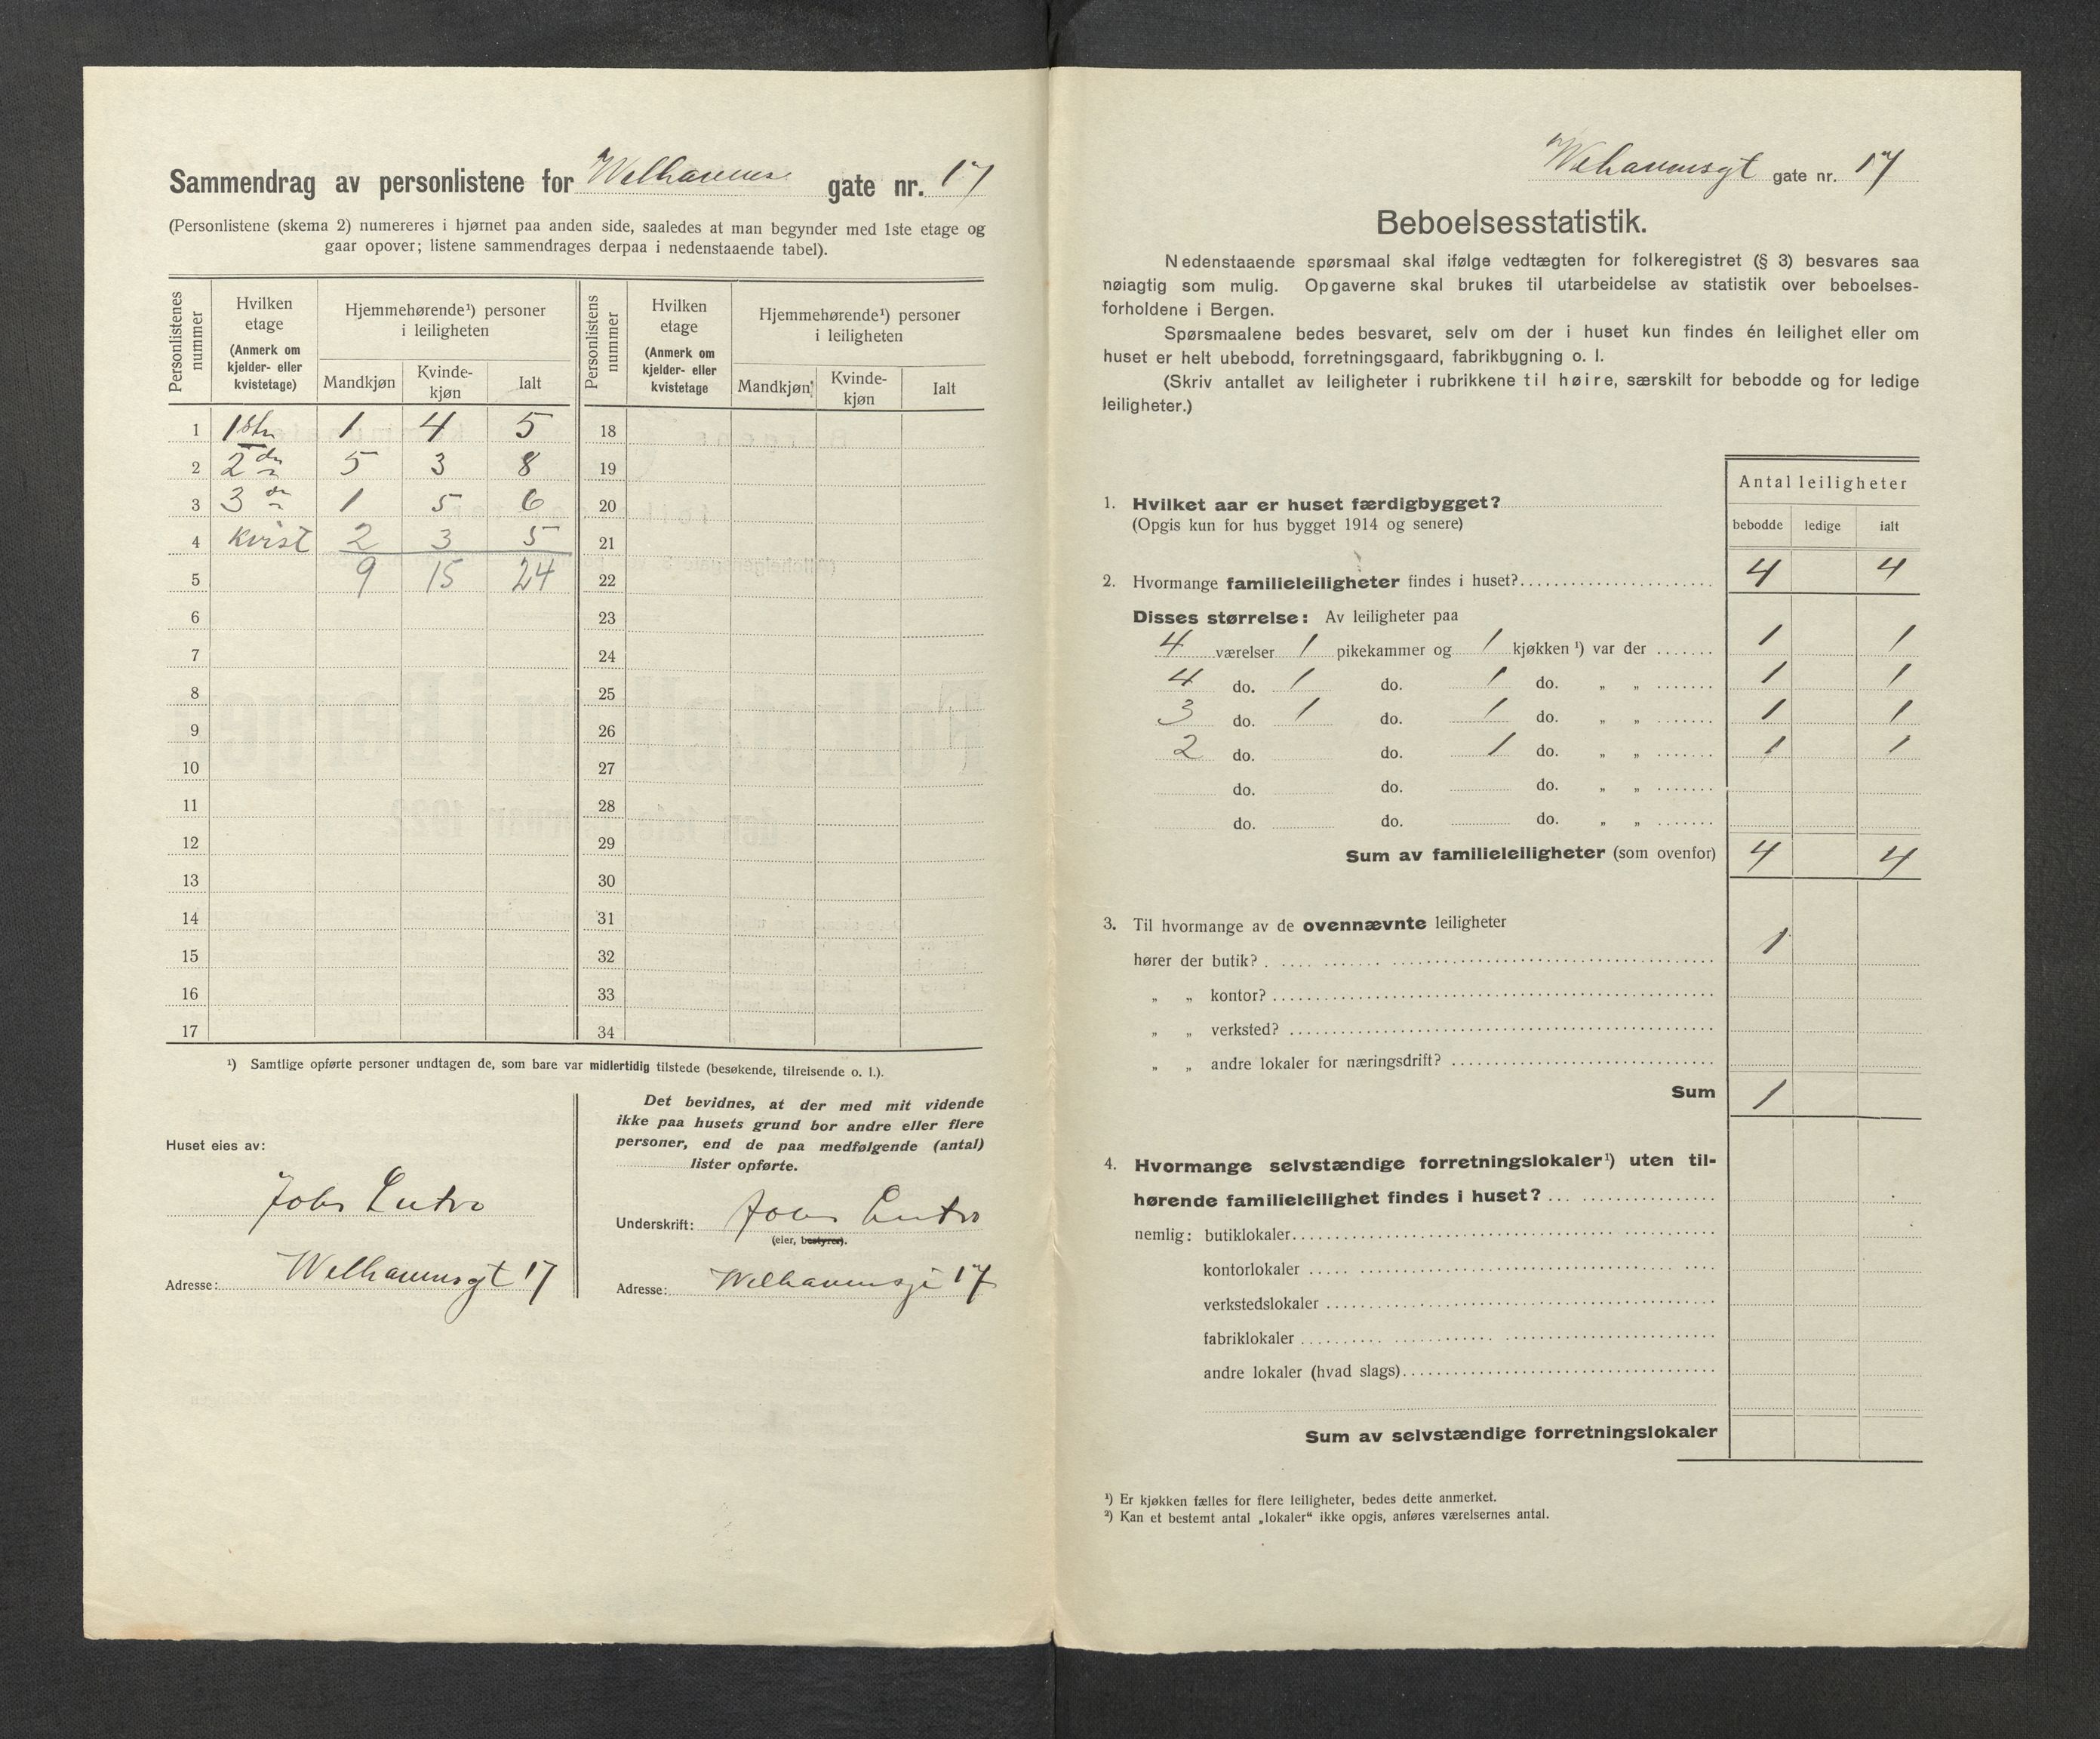 Sammendrag av personlistene for Welhavens gate nr. 17
(Personlistene (skema 2) numereres i hjørnet paa anden side, saaledes at man begynder med 1ste etage og
gaar opover; listene sammendrages derpaa i nedenstaaende tabel).
Personlistenes nummer | Hvilken etage (Anmerk om kjelder- eller kvistetage) | Hjemmehørende¹) personer i leiligheten | Mandkjøn | Kvinde-kjøn | Ialt
Personlistens nummer | Hvilken etage (Anmerk om kjelder- eller kvistetage | Hjemmehørende¹) personer i leiligheten | Mandkjøn | Kvinde-kjøn | Ialt
1 1ste 1 4 5 18
2 2den 5 3 8 19
3 3de 1 5 6 20
4 Kvist 2 3 5 21
5 9 15 24 22
6 23
7 24
8 25
9 26
10 27
11 28
12 29
13 30
14 31
15 32
16 33
17 34
¹) Samtlige opførte personer undtagen de, som bare var midlertidig tilstede (besøkende, tilreisende o. l.).
Huset eies av:
Johs Lutro
Adresse: Welhavensgt 17
Det bevidnes, at der med mit vidende
ikke paa husets grund bor andre eller flere
personer, end de paa medfølgende (antal)
lister opførte.
Underskrift: Johs Lutro
(eier, bestyrer).
Adresse: Welhavensgt 17
Wehavensgt gate nr. 17
Beboelsesstatistik.
Nedenstaaende spørsmaal skal ifølge vedtægten for folkeregistret (§ 3) besvares saa
nøiagtig som mulig. Opgaverne skal brukes til utarbeidelse av statistik over beboelses-
forholdene i Bergen.
Spørsmaalene bedes besvaret, selv om der i huset kun findes én leilighet eller om
huset er helt ubebodd, forretningsgaard, fabrikbygning o. l.
(Skriv antallet av leiligheter i rubrikkene til høire, særskilt for bebodde og for ledige
leiligheter.)
Antal leiligheter
bebodde ledige ialt
1. Hvilket aar er huset færdigbygget?
(Opgis kun for hus bygget 1914 og senere)
2. Hvormange familieleiligheter findes i huset? 4 4
Disses størrelse: Av leiligheter paa
4 værelser 1 pikekammer og 1 kjøkken ¹) var der 1 1
4 do. 1 do. 1 do. „ „ 1 1
3 do. 1 do. 1 do. „ „ 1 1
2 do. do. 1 do. „ „ 1 1
do. do. do. „ „
do. do. do. „ „
Sum av familieleiligheter (som ovenfor) 4 4
3. Til hvormange av de ovennævnte leiligheter
hører der butik? 1
„ „ kontor?
„ „ verksted?
„ „ andre lokaler for næringsdrift?
Sum 1
4. Hvormange selvstændige forretningslokaler¹) uten til-
hørende familieleilighet findes i huset?
nemlig: butiklokaler
kontorlokaler
verkstedslokaler
fabriklokaler
andre lokaler (hvad slags)
Sum av selvstændige forretningslokaler
¹) Er kjøkken fælles for flere leiligheter, bedes dette anmerket.
²) Kan et bestemt antal „lokaler“ ikke opgis, anføres værelsernes antal.